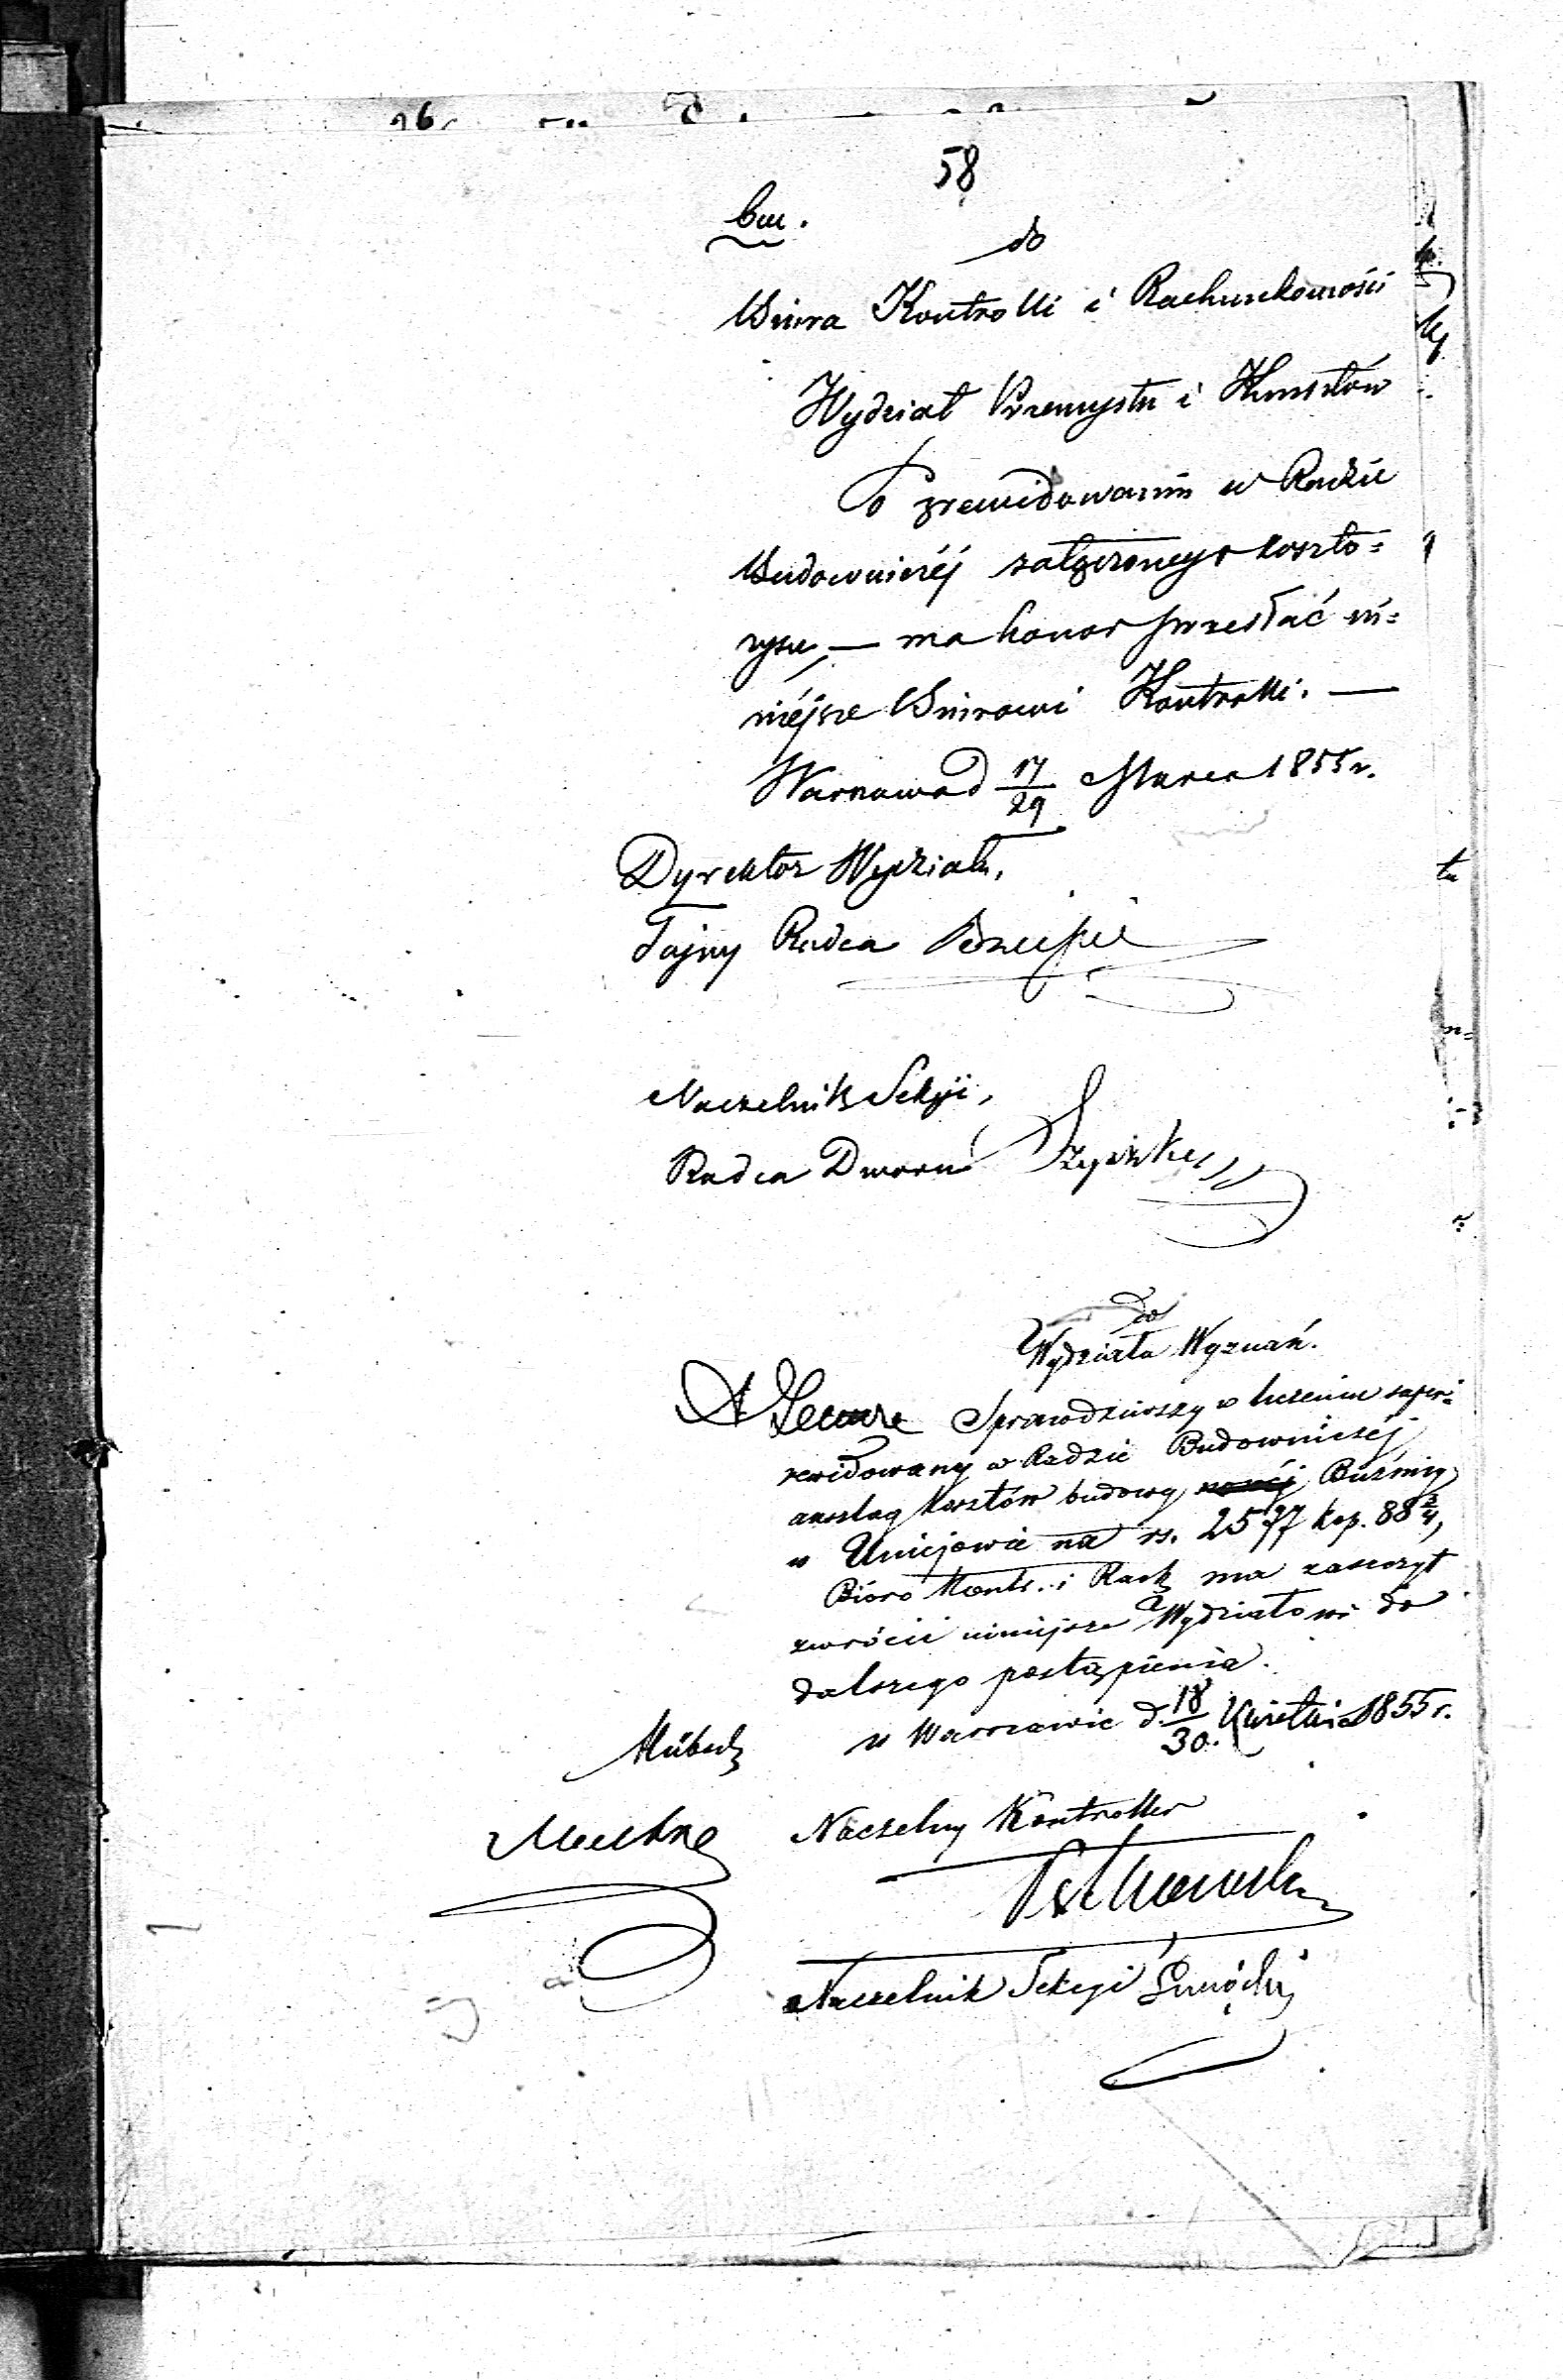 58
do
Biura Kontrolli i Rachunkowości
Wydział Przemysłu i Kunsztów
Po zrewidowaniu w Radzie
Budowniczéj załączonego koszto=
rysu, — ma honor przesłać ni=
niéjsze Biurowi Kontrolli. —
Warszawa d 17/29 Marca 1855 r.
Dyrektor Wydziału,
Tajny Radca
Naczelnik Sekcji,
Radca Dworu
do
Wydziału Wyznań.
Sprawdziwszy w liczeniu superi=
rewidowany w Radzie Budowniczéj
anszlag kosztów budowy nowéj Buźnicy
w Uniejowie na rs. 2577 kop. 88 3/4,
Bióro Kontr. i Rach ma zaszczyt
zwrócić niniejsze Wydziałowi do
dalszego postąpienia.
w Warszawie d. 18/30. Kwietnia 1855 r.
Naczelny Kontroller
Naczelnik Sekcyi